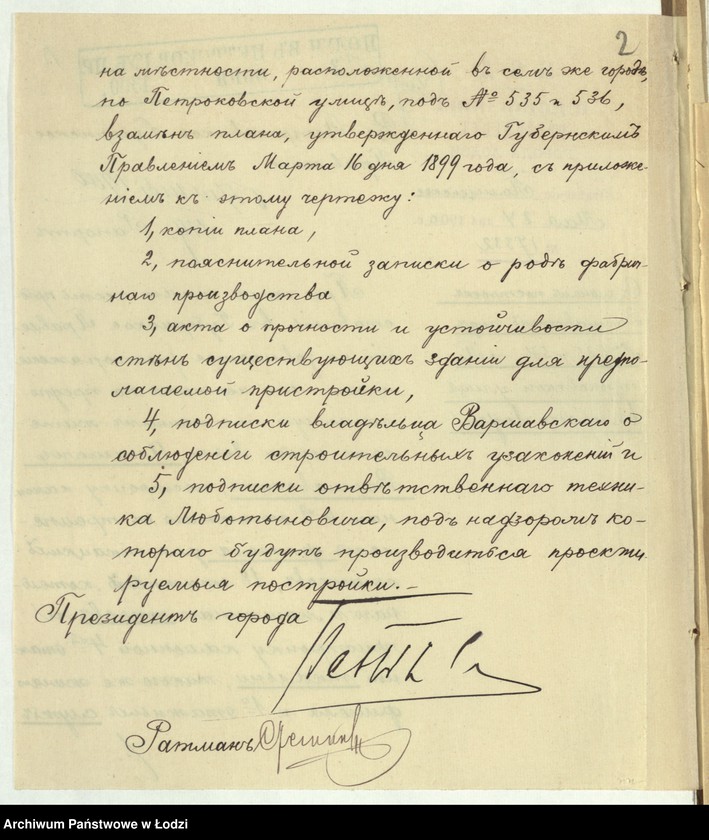 2
на мѣстности, расположенной въ семъ же городѣ,
по Петроковской улицѣ, подъ № 535 и 536,
взамѣнъ плана, утвержденнаго Губернскимъ
Правленіемъ Марта 16 дня 1899 года, съ приложе-
ніемъ къ этому чертежу:
1, копіи плана,
2, пояснительной записки о родѣ фабрич-
наго производства
3, акта о прочности и устойчивости
стѣнъ существующихъ зданій для предпо-
лагаемой пристройки,
4, подписки владѣльца Варшавскаго о
соблюденіи строительныхъ узаконеній и
5, подписки отвѣтственнаго техни-
ка Люботыновича, подъ надзоромъ ко-
тораго будутъ производиться проекти-
руемыя постройки.-
Президентъ города
Ратманъ
Archiwum Państwowe w Łodzi